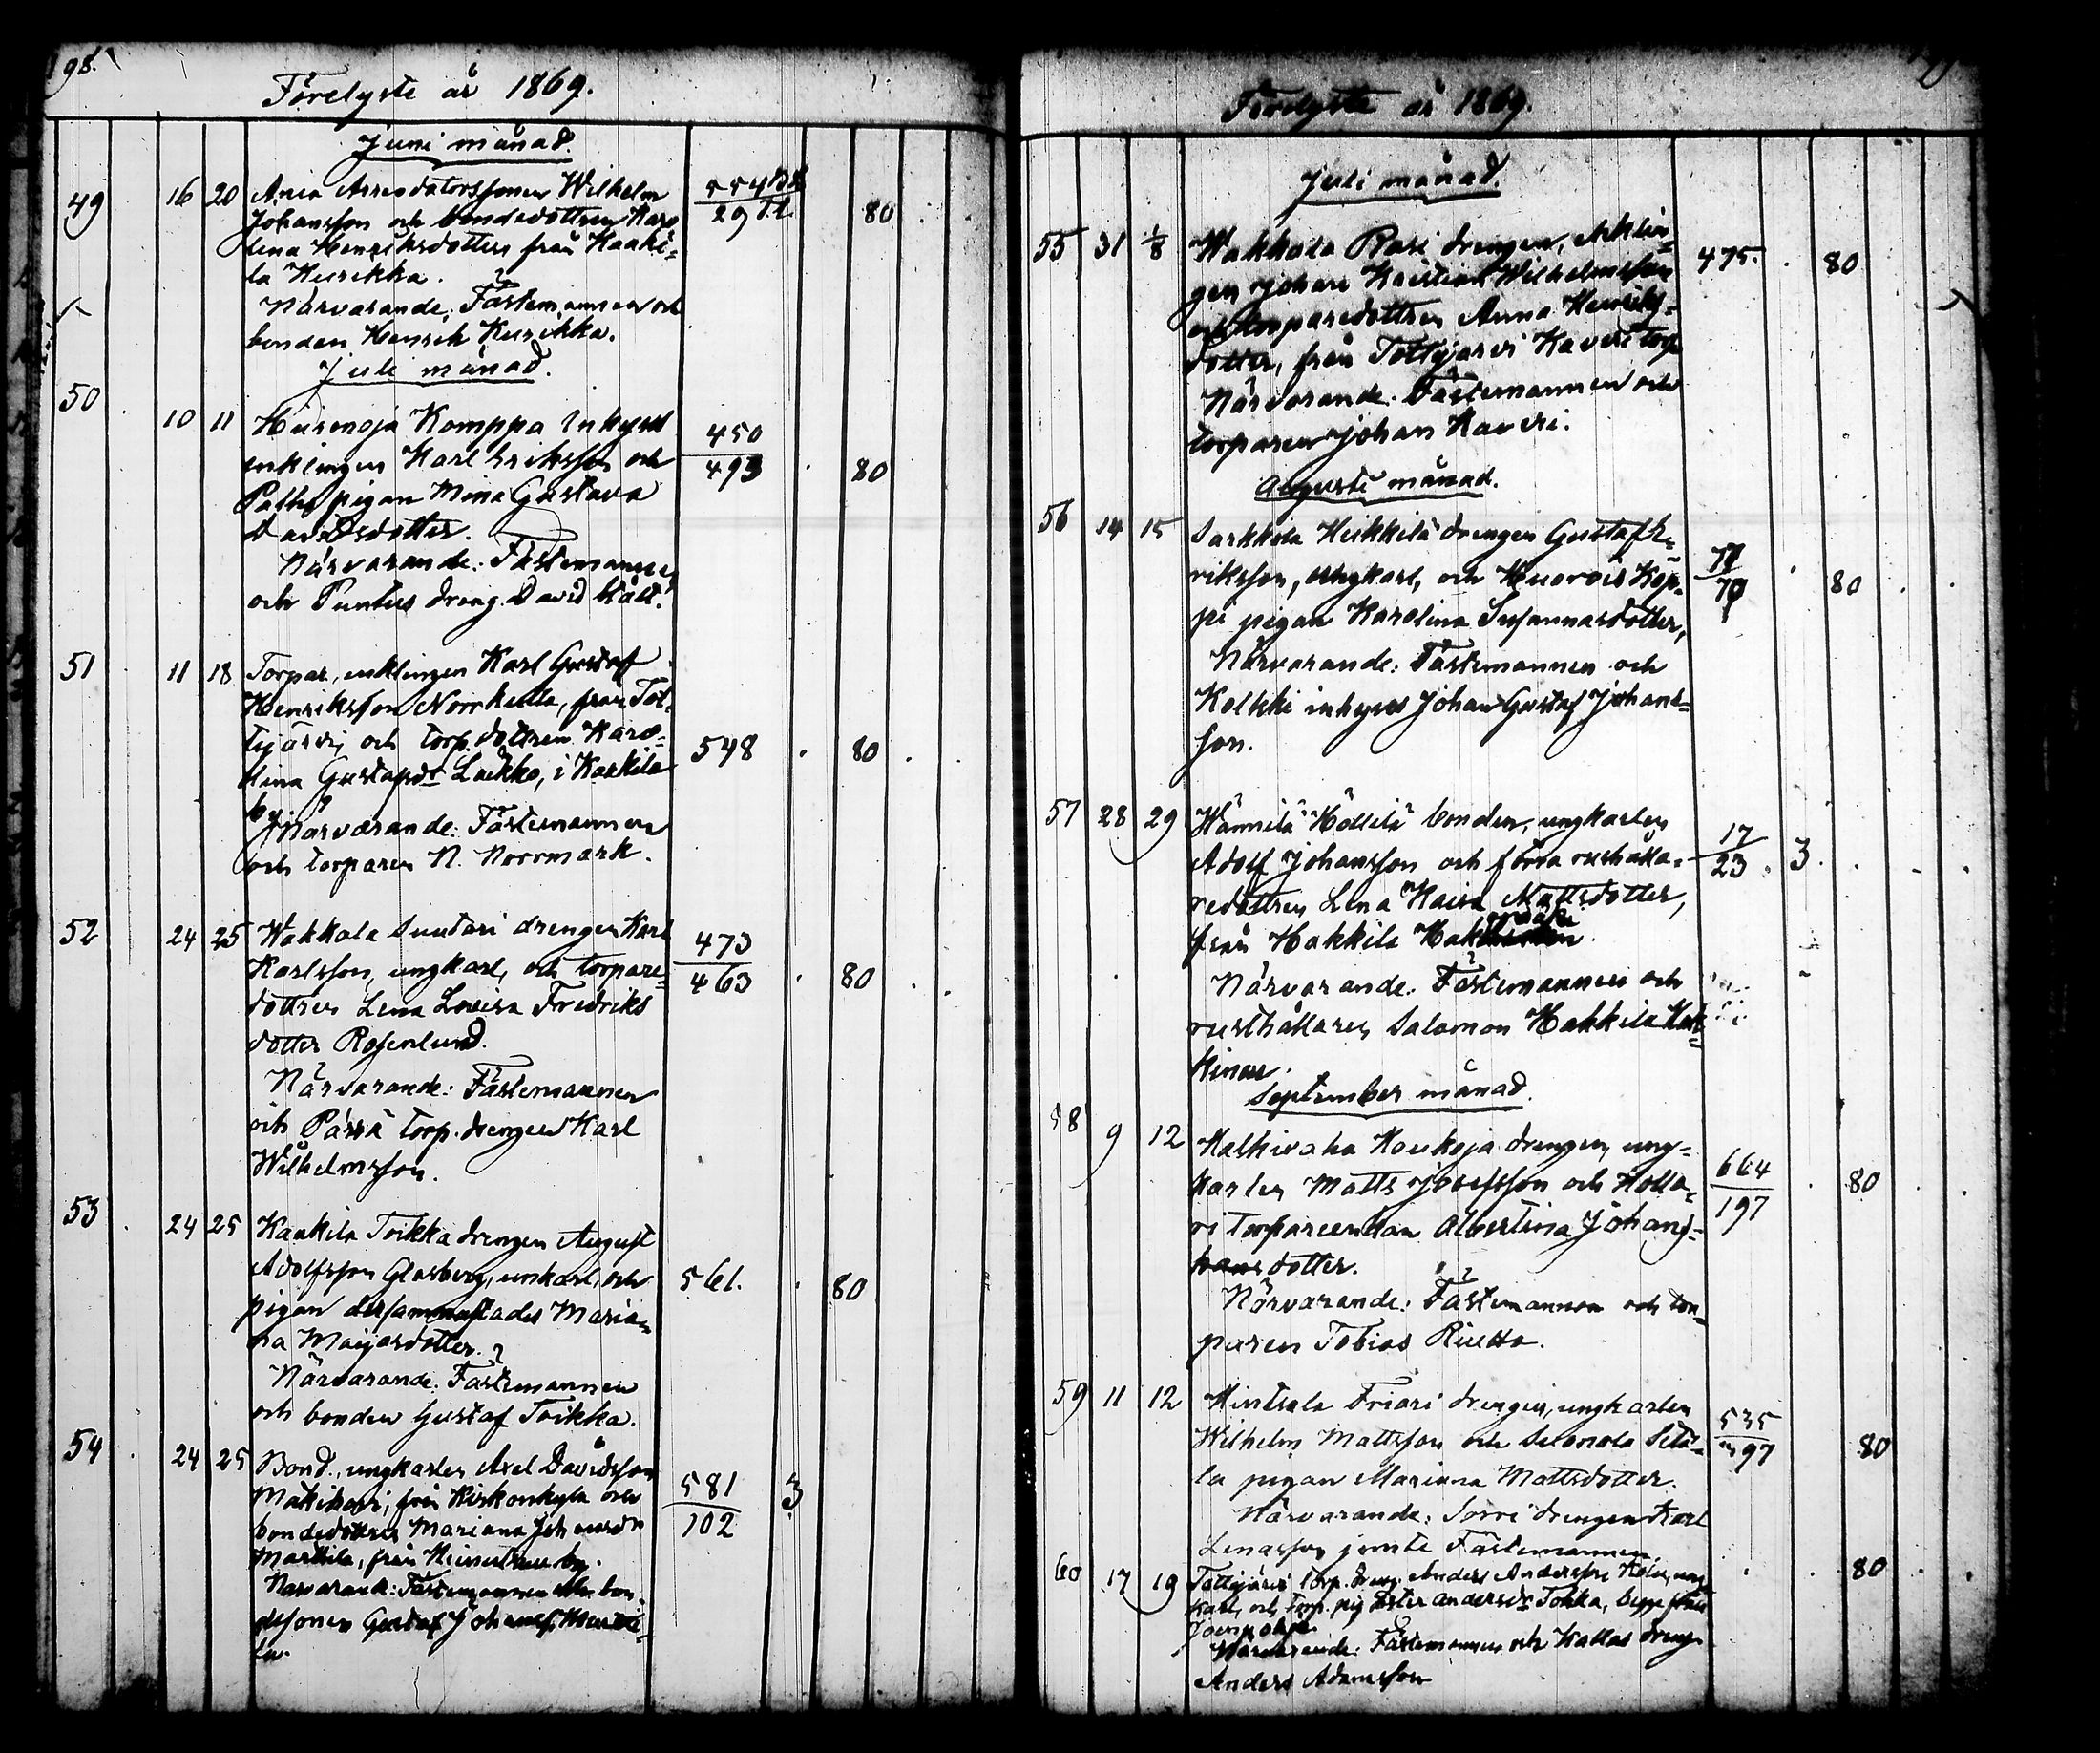 98.
Förelyste år 1869.
Juni månad.
49 16 20 Arrendatorssonen Wilhelm 554
Johansson och bondedottren Karo 29 80
lina Henriksdotter från Kaaki-
la Kurikka.
Närvarande: Fästemannen och
bonden Henrik Kurikka.
Juli månad.
50
10 11 Komppa Inhyses 450
enklingen Karl Eriksson och 493 80
pigan Mina Gustava
Davidsdotter.
Närvarande: Fästemannen
och Puntus dreng David
51 11 18 Torpar, enklingen Karl Gustaf
Henriksson Norrkulla, från Tot-
tijärvi och torp. dottren Karo- 548 80
lina Gustafsdr Lukko, i Kaakila
by
Närvarande: Fästemannen
och torparen N. Norrmark.
52 24 25 Wakkala Suutari drengen Karl 473
Karlsson, ungkarl, och torpare- 463 80
dottren Lena Lovisa Fredriks
dotter Rosenlund.
Närvarande: Fästemannen
och Pässä torp. drengen Karl
Wilhelmsson.
53
24 25 Kaakila Toikka drengen August
Adolfsson Glasberg, unkarl, och 561. 80
pigan dersammastädes Maria-
na Maijasdotter.
Närvarande: Fästemannen
och bonden Gustaf Toikka.
54 24 25 Bond., ungkarlen Axel Davidsson 581 3
Mäkikovi, från Kirkonkylä och 102
bondedottren Mariana Johansdr
Markila, från by.
Närvarande: Fästemannen och bon-
desonen Gustaf Johansf.
la.
Förelyste år 1869.
Juli månad.
55 31 1/8 Wakkala Rasi drengen, enklin- 475. 80
gen Johan Kristian Wilhelmsson
och torparedottren Anna Henriks-
dotter, från Tottijärvi Kaveri torp
Närvarande: Fästemannen och
torparen Johan Kaveri.
Augusti månad.
56 14 15 Sarkkola Heikkilä drengen Gustaf E-
riksson, ungkarl, och Kuorois Kop- 80
pi pigan Karolina Susannasdotter,
Närvarande: Fästemannen och
Kolkki inhyses Johan Gustaf Johans-
son.
57 28 29 Hännilä Höllilä bonden, ungkarlen 17
Adolf Johansson och förra rusthålla- 23 3.
redottren Lena Kaisa Mattsdotter,
från Hakkila
Närvarande: Fästemannen och
rusthållaren Salomon Hakkila Hak-
kinen.
September månad.
58
9 12 Halkivaha Koukoja drengen, ung- 664
karlen Matts Josefsson och Holla- 197 80
ri torpareenkan Albertina Johans-
dotter.
Närvarande: Fästemannen och tor-
paren Tobias Riutta.
59 11 12 Mintsala Friari drengen, ungkarlen 535
Wilhelm Mattsson och Sutä- 97 80
la pigan Mariana Mattsdotter.
Närvarande: Sorri drengen Karl
Lenasson jemte Fästemannen
60 17 19 Tottijärvi torp. dreng Anders Andersson ung 80
karl, och torp. pig Ester Andersdr Tokka, begge från
Närvarande: Fästemannen och Kallas dreng
Anders Adamsson